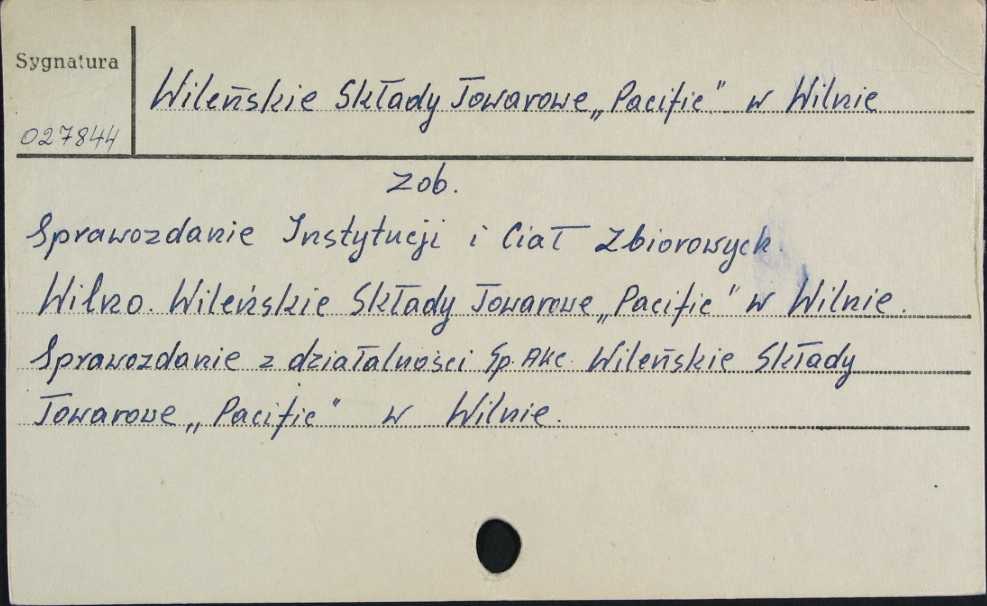 Sygnatura
Wileńskie Składy Towarowe „Pacific" w Wilnie
027844
Zob.
Sprawozdanie Instytucji i Ciał Zbiorowych.
Wilno. Wileńskie Składy Towarowe „Pacific" w Wilnie.
Sprawozdanie z działalności Sp. Akc. Wileńskie Składy
Towarowe „Pacific" w Wilnie.